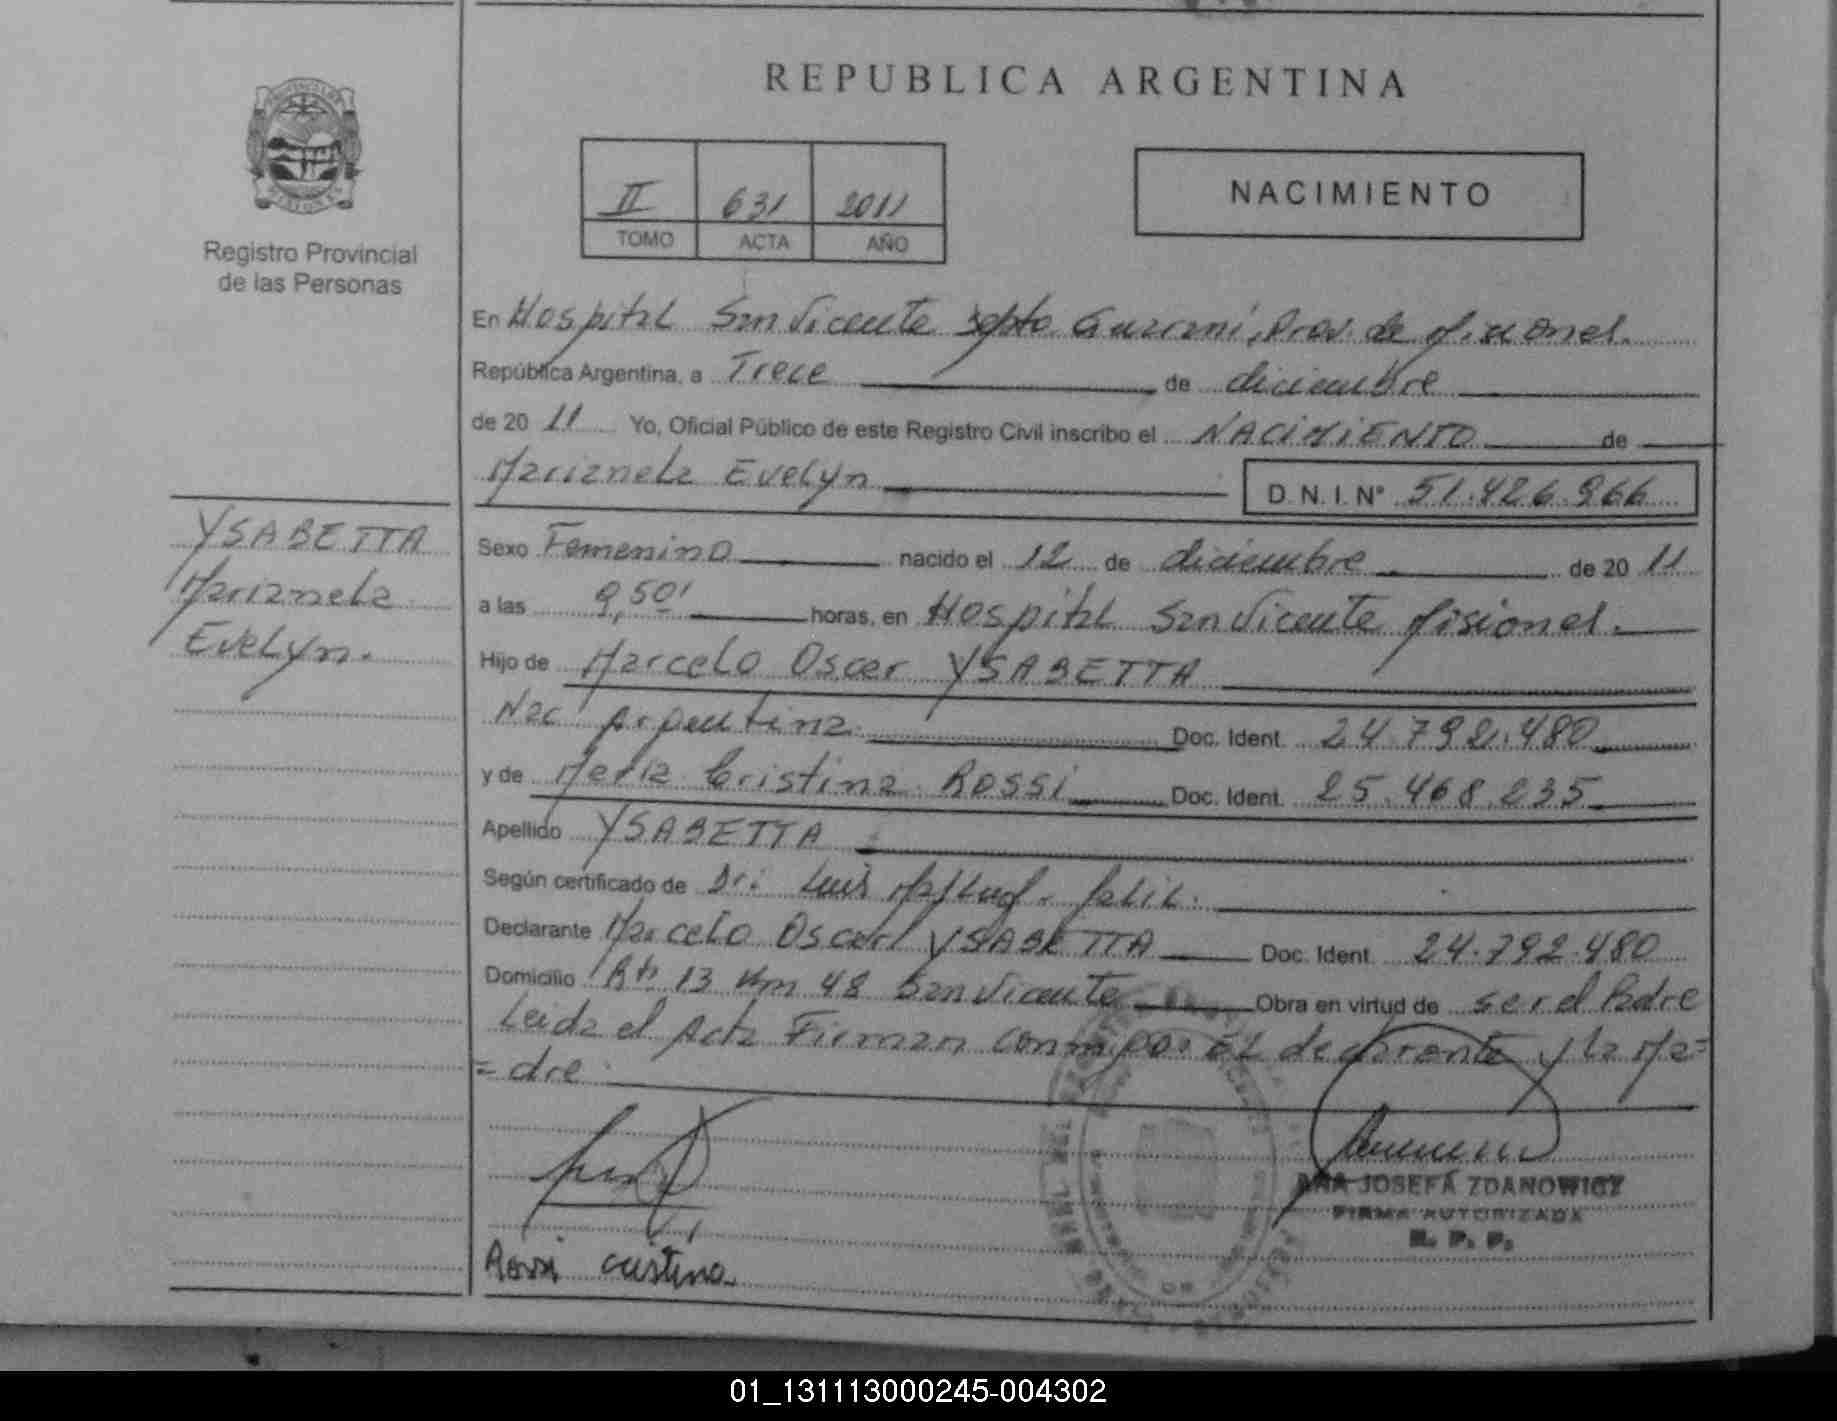 REPUBLICA ARGENTINA
PROVINCIA DE
MISIONES
Registro Provincial
de las Personas
II 631 2011
TOMO ACTA AÑO
NACIMIENTO
En Hospital San Vicente Dpto Guarani, Prov. de Misiones.
República Argentina, a Trece de diciembre
de 2011 Yo, Oficial Público de este Registro Civil inscribo el NACIMIENTO de
Marianela Evelyn D. N. I. Nº 51.426.966
YSABETTA
Marianela
Evelyn.
Sexo Femenino nacido el 12 de diciembre de 2011
a las 9,50' horas, en Hospital San Vicente Misiones.
Hijo de Marcelo Oscar YSABETTA
Nac Argentina Doc. Ident. 24.792.480
y de Maria Cristina ROSSI Doc. Ident. 25.468.235
Apellido YSABETTA
Según certificado de Dr. Luis
Declarante Marcelo Oscar YSABETTA Doc. Ident. 24.792.480
Domicilio Rta 13 Km 48 San Vicente Obra en virtud de ser el Padre
Leida el Acta Firman conmigo EL declarante y la Ma=
=dre
ANA JOSEFA ZDANOWICZ
FIRMA AUTORIZADA
R. P. P.
Rossi Cristina
01_131113000245-004302